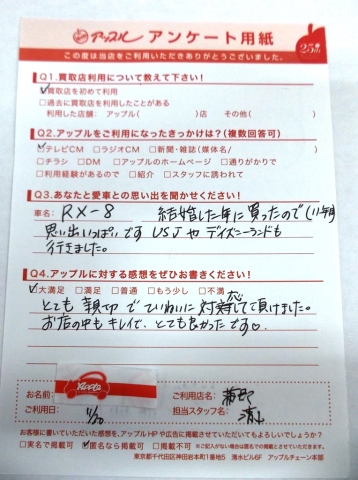 アップル アンケート用紙
この度は当店をご利用いただきありがとうございました。
25th
Q1.買取店利用について教えて下さい!
☑買取店を初めて利用
□過去に買取店を利用したことがある
利用した店舗: アップル( )店 その他( )
Q2.アップルをご利用になったきっかけは?(複数回答可)
☑テレビCM □ラジオCM □新聞・雑誌(媒体名/ )
□チラシ □DM □アップルのホームページ □通りがかりで
□利用経験があるので □紹介 □スタッフに誘われて
Q3.あなたと愛車との思い出を聞かせください!
車名: RX-8 結婚した年に買ったので(11年前)
思い出いっぱいです USJやディズニーランドも
行きました。
Q4.アップルに対する感想をぜひお書きください!
☑大満足 □満足 □普通 □もう少し □不満
とても親切でていねいに対応して頂けました。
お店の中もキレイで、とても良かったです♡
お名前:
ご利用店名:
ご利用日: 11/20
担当スタッフ名:
お客様に書いていただいた感想を、アップルHPや広告に掲載させていただいてもよろしいでしょうか?
□実名で掲載可 ☑匿名なら掲載可 □掲載不可 ※ご記入がない場合は匿名での掲載とさせていただきます。
東京都千代田区神田岩本町1番地5 清水ビル6F アップルチェーン本部